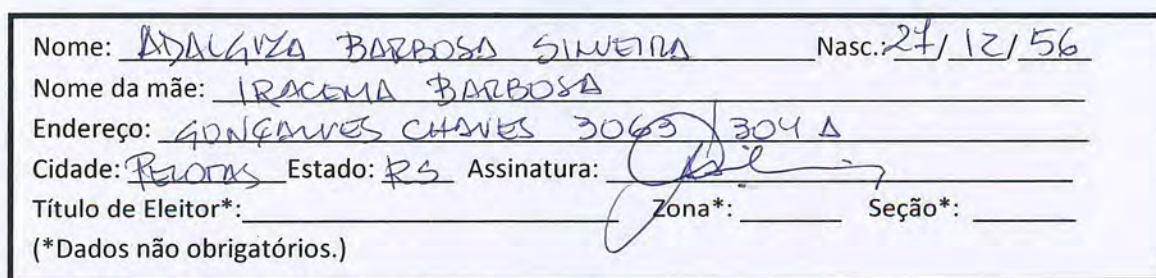 Nome: ADALGIZA BARBOSA SILVEIRA Nasc.: 27/12/56
Nome da mãe: IRACEMA BARBOSA
Endereço: GONÇALVES CHAVES 3063 / 304 A
Cidade: PELOTAS Estado: RS Assinatura:
Título de Eleitor*: Zona*: Seção*:
(*Dados não obrigatórios.)